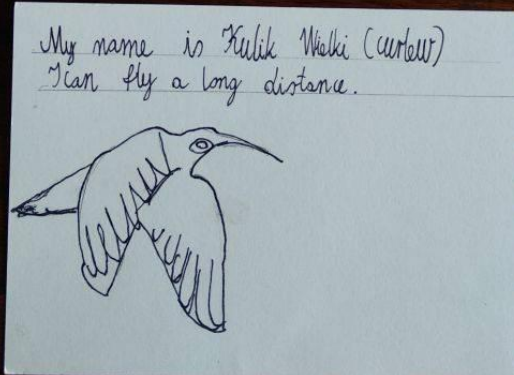 My name is Kulik Wielki (curlew)
I can fly a long distance.